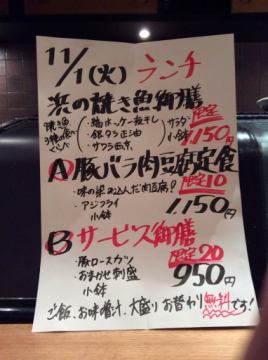 11/1(火) ランチ
浜の焼き魚御膳
焼き魚3種の食べくらべ
・縞ホッケ一夜干し
・銀ダラ正油
・サワラ西京
サラダ
小鉢
限定
1,150円
A 豚バラ肉豆腐定食
・味の染み込んだ肉豆腐!
限定10
・アジフライ
小鉢
1,150円
B サービス御膳
限定20
・豚ロースカツ
・おまかせ刺盛
小鉢
950円
ご飯、お味噌汁、大盛り お替わり無料です!